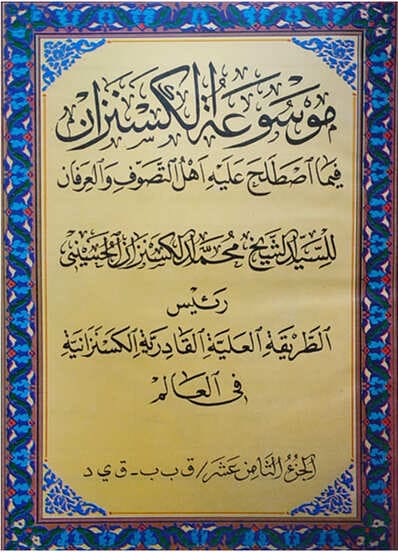 موسوعة الكسنزان
فيما اصطلح عليه أهل التصوف والعرفان
للسيد الشيخ محمد الكسنزان الحسيني
رئيس
الطريقة العلية القادرية الكسنزانية
في العالم
الجزء الثامن عشر / ق ب ب - ق ي د